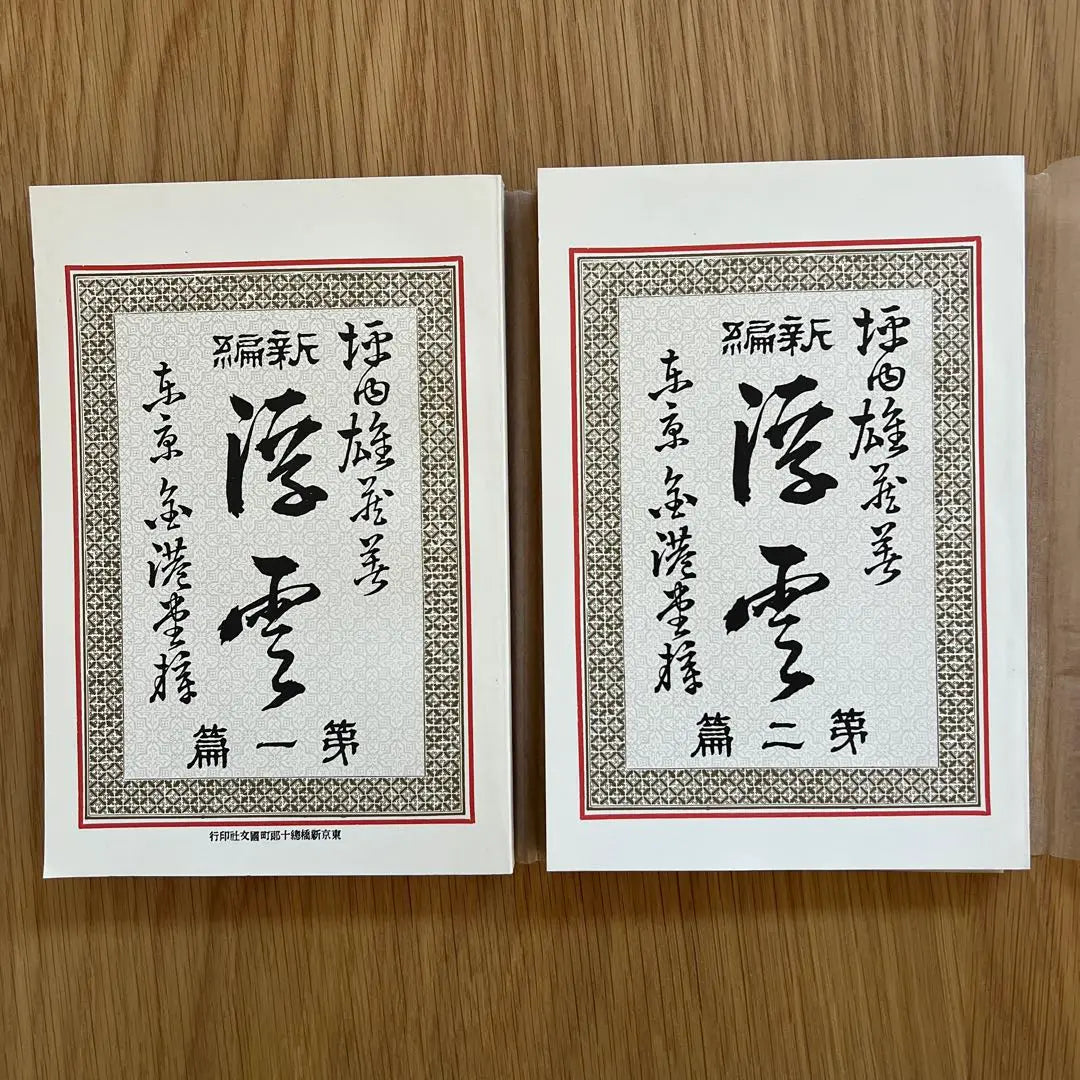 坪内雄藏著
新編
浮雲
第一篇
東京 金港堂梓
東京新橋總十郎町國文社印行
坪内雄藏著
新編
浮雲
第二篇
東京 金港堂梓